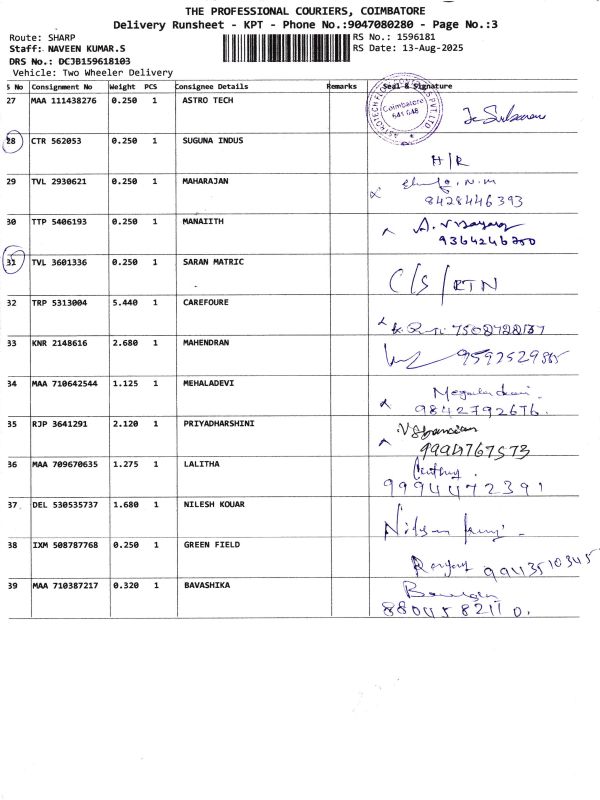 THE PROFESSIONAL COURIERS, COIMBATORE
Delivery Runsheet - KPT - Phone No.:9047080280 - Page No.:3
Route: SHARP RS No.: 1596181
Staff: NAVEEN KUMAR.S RS Date: 13-Aug-2025
DRS No.: DCJB159618103
Vehicle: Two Wheeler Delivery
S No Consignment No Weight PCS Consignee Details Remarks Seal & Signature
27 MAA 111438276 0.250 1 ASTRO TECH
Coimbatore
641 048
28 CTR 562053 0.250 1 SUGUNA INDUS
H/R
29 TVL 2930621 0.250 1 MAHARAJAN
8428446393
30 TTP 5406193 0.250 1 MANAIITH
9364246200
31 TVL 3601336 0.250 1 SARAN MATRIC
C/S / RTN
32 TRP 5313004 5.440 1 CAREFOURE
33 KNR 2148616 2.680 1 MAHENDRAN
34 MAA 710642544 1.125 1 MEHALADEVI
9842792676.
35 RJP 3641291 2.120 1 PRIYADHARSHINI
9994767573
36 MAA 709670635 1.275 1 LALITHA
9994472391
37 DEL 530535737 1.680 1 NILESH KOUAR
38 IXM 508787768 0.250 1 GREEN FIELD
9943510345
39 MAA 710387217 0.320 1 BAVASHIKA
8804582110.